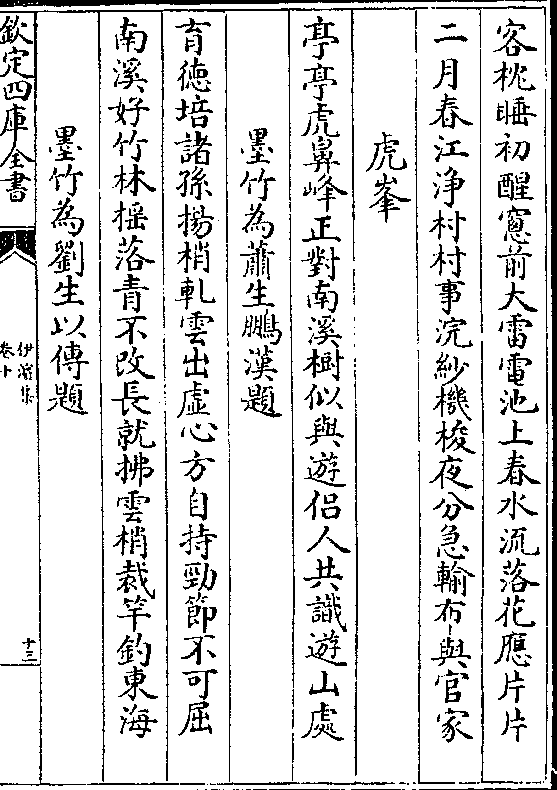 客枕睡初醒窻前大雷電池上春水流落花應片片
二月春江浄村村事浣紗機梭夜分急輸布與官家
虎峯
亭亭虎鼻峰正對南溪樹似與遊侣人共識遊山處
墨竹為蕭生鵬漢題
育徳培諸孫揚梢軋雲出虚心方自持勁節不可屈
南溪好竹林揺落青不改長就拂雲梢裁竿釣東海
墨竹為劉生以傳題
欽定四庫全書
伊濵集
卷十
十三